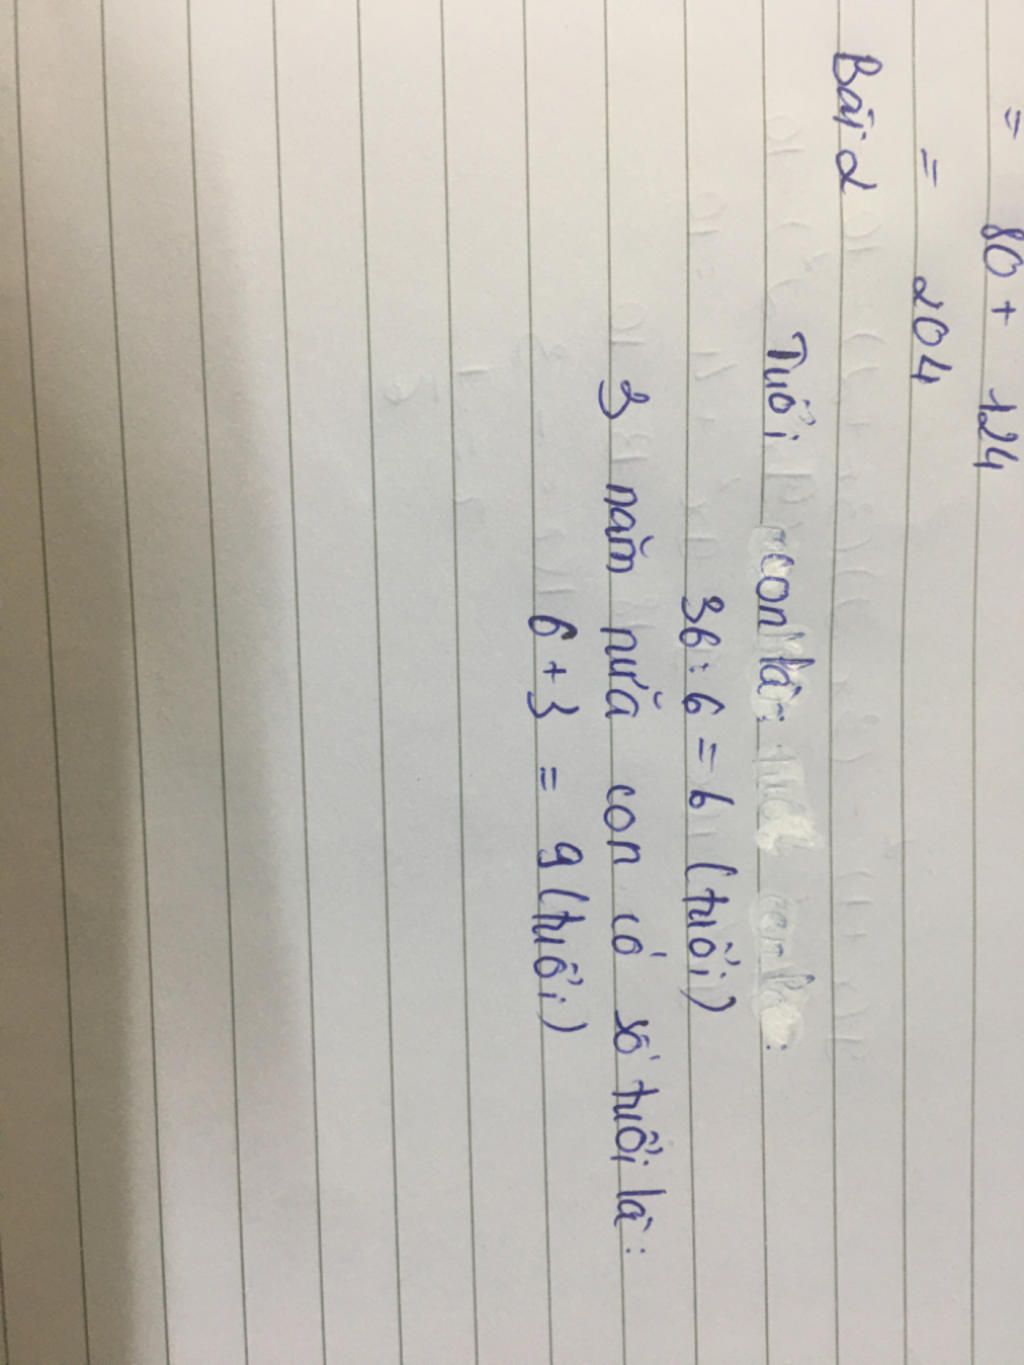 = 80 + 124
= 204
Bài 2
Tuổi con là:
36 : 6 = 6 (tuổi)
3 năm nữa con có số tuổi là:
6 + 3 = 9 (tuổi)